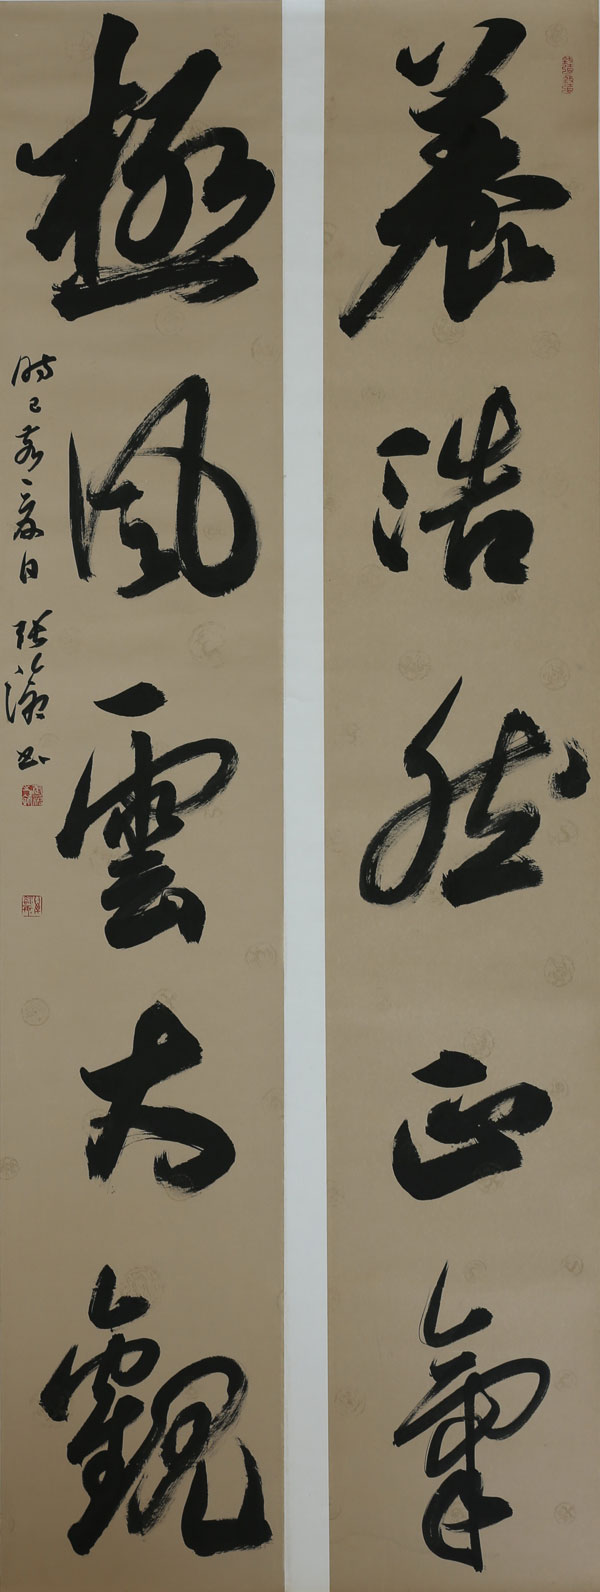 養浩然正氣
極風雲大觀
時己亥夏日 張瀹書